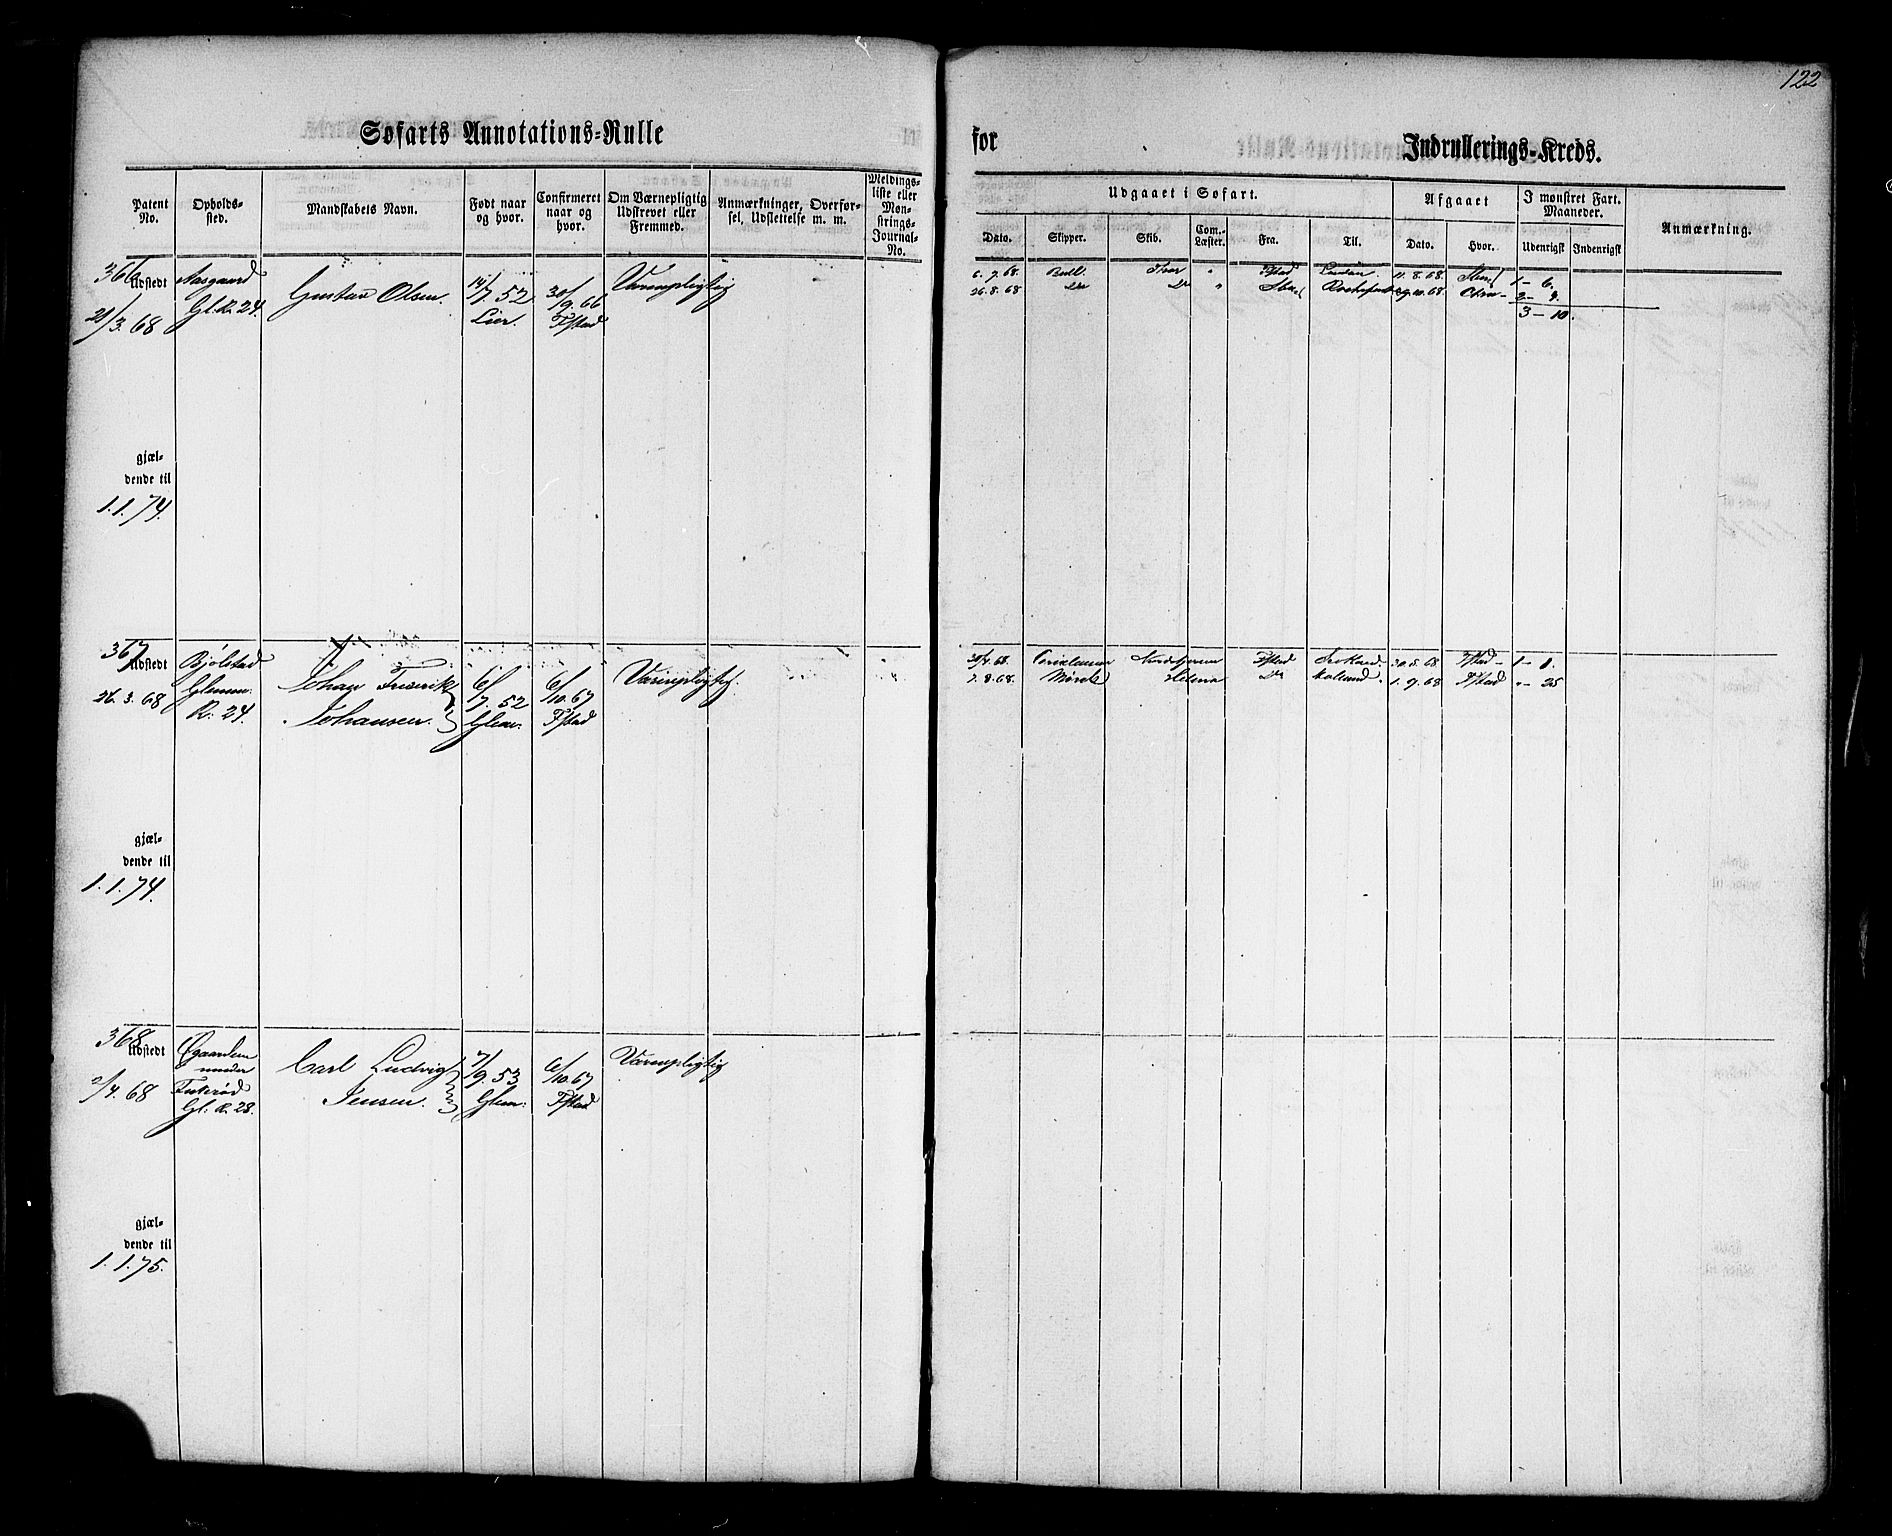 122
Søfarts Annotations-Rulle for Indrullerings-Kreds.
Patent No.
Opholds-sted.
Mandskabets Navn.
Født naar og hvor.
Confirmeret naar og hvor.
Om Værnepligtig Udskrevet eller Fremmed.
Anmærkninger, Overfør-sel, Udslettelse m. m.
Meldings-liste eller Møn-strings-Journal-No.
Udgaaet i Søfart.
Afgaaet
I mønstret Fart. Maaneder.
Anmærkning.
Dato. Skipper. Skib. Com.-Læster. Fra. Til. Dato. Hvor. Udenrigsk Indenrigsk
366
Udstedt
21/3. 68
Aasgaard
Gl. R. 24.
Gustav Olsen.
14/7. 52
Lier.
30/9. 66
Fstad
Værnepligtig
6. 7. 68. Bull. Thor " Fstad 11. 8. 68. 1 - 6.
26. 8. 68 Do Do " 2 - 4.
3 - 10.
gjæl-
dende til
1. 1. 74.
367
Udstedt
26. 3. 68
Bjølstad
Glemm.
R. 24.
Johan Frederik
Johansen.
6/7. 52
Glem.
6/10. 67
Fstad
Værnepligtig.
Fstad 30. 5. 68 Fstad - 1 - 1.
7. 8. 68. Helena Do 1. 9. 68 Fstad " - 25
gjæl-
dende til
1. 1. 74.
368
Udstedt
2/4. 68
Øgaarden
under
Gl. R. 28.
Carl Ludvig
Jensen.
7/9. 53
Glem.
6/10. 67
Fstad
Værnepligtig
gjæl-
dende til
1. 1. 75.